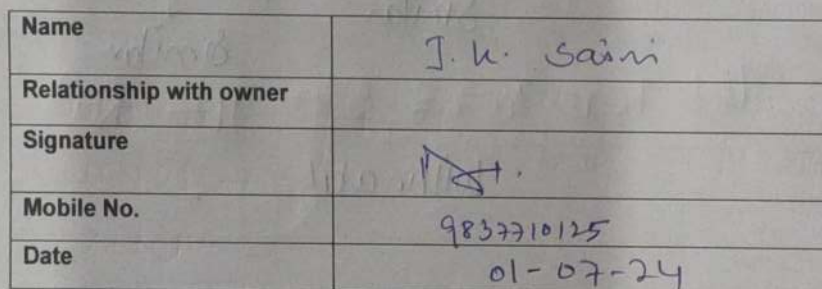 Name J. K. Saini
Relationship with owner
Signature
Mobile No. 9837710125
Date 01-07-24